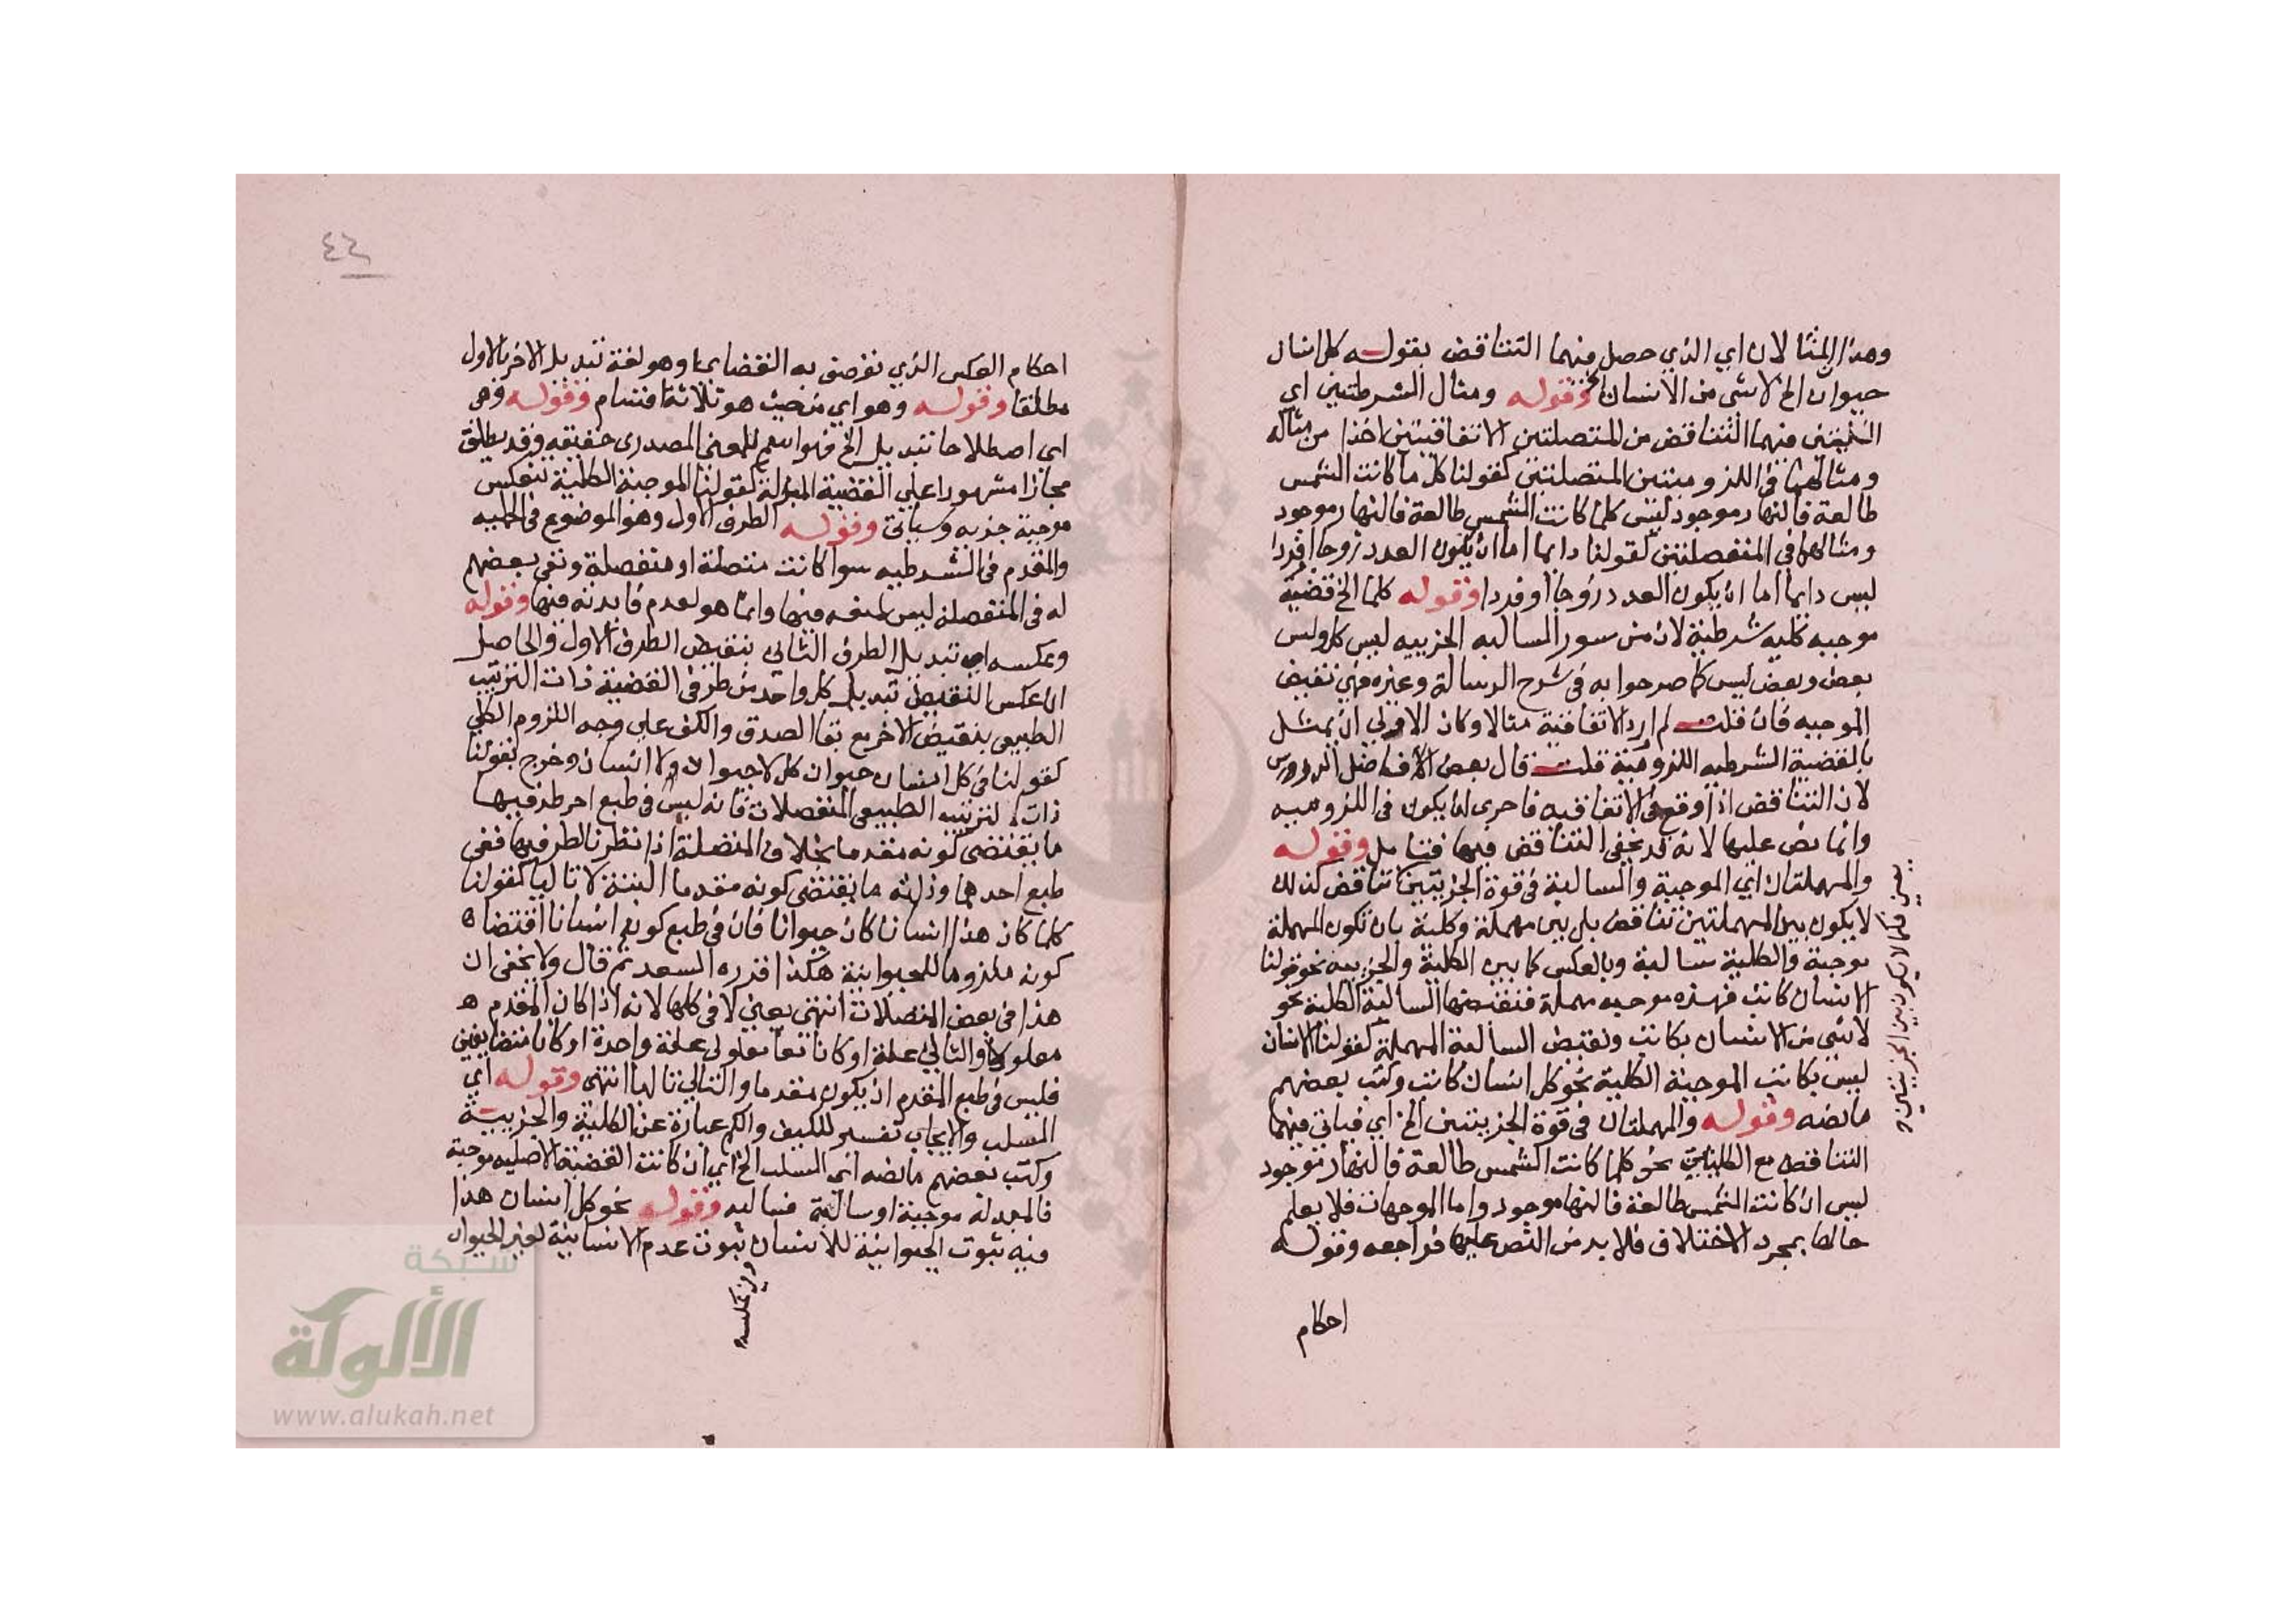 وهذا المثالان اي الذي حصل فيهما التناقض بقوله كل انسان
حيوان الخ لاشي من الانسان الخ وقوله ومثال الشرطيتين اي
اللتين فيهما التناقض من المتصلتين الاتفاقيتين اخذا من مثاله
ومثالهما في اللزوميتين المتصلتين كقولنا كل ما كانت الشمس
طالعة فالنهار موجود ليس كلما كانت الشمس طالعة فالنهار موجود
ومثالهما في المنفصلتين كقولنا دايما اما ان يكون العدد زوجا او فردا
ليس دايما اما ان يكون العدد زوجا او فردا وقوله كلما الخ قضية
موجبه كليه شرطية لان من سور السالبه الجزييه ليس كل وليس
بعض وبعض ليس كما صرحوا به في شرح الرسالة وغيره فهي نقيض
الموجبه فان قلت لم ارد الاتفاقية مثالا وكان الاولي ان يمثل
بالقضية الشرطيه اللزومية قلت قال بعض الافاضل الدروس
لان التناقض اذا وقع في الاتفاقيه فاحري ان يكون في اللزوميه
وانما نص عليها لانه قد يخفي التناقض فيها فتامل وقوله
والمهملتان اي الموجبة والسالبة في قوة الجزيتين تناقض كذلك
لا يكون بين المهملتين تناقض بل بين مهملة وكلية بان تكون المهملة
موجبة والكلية سالبة وبالعكس كما بين الكلية والجزييه نحو قولنا
الانسان كاتب فهذه موجبه مهملة فنقيضها السالبة الكلية نحو
لاشي من الانسان بكاتب ونقيض السالبة المهملة كقولنا الانسان
ليس بكاتب الموجبة الكلية نحو كل انسان كاتب وكتب بعضهم
مانصه وقوله والمهملتان في قوة الجزيتين الخ اي فياتي فيهما
التناقض مع الكليتين نحو كلما كانت الشمس طالعة فالنهار موجود
ليس ان كانت الشمس طالعة فالنهار موجود واما الموجهات فلا يعلم
حالها بمجرد الاختلاف فلا بد من النص عليها فراجعه وقوله
احكام
يعني فكما لا يكون بين الجزيتين
٤٤
احكام العكس الذي نوصف به القضايا وهو لغة تبديل الاخر بالاول
مطلقا وقوله وهو اي من حيث هو ثلاثة اقسام وقوله وهي
اي اصطلاحا تبديل الخ فهو اسم للمعني المصدري حقيقه وقد يطلق
مجازا مشهورا علي القضية المبدلة كقولنا الموجبة الكلية تنعكس
موجبة جزيه وسياتي وقوله الطرف الاول وهو الموضوع في الحمليه
والمقدم في الشرطيه سوا كانت متصلة او منفصلة ونفي بعضهم
له في المنفصلة ليس لمنعه فيها وانما هو لعدم فايدته فيها وقوله
وعكسه اي تبديل الطرف الثاني بنقيض الطرف الاول والحاصل
ان عكس النقيض تبديل كل واحد من طرفي القضية ذات الترتيب
الطبيعي بنقيض الاخر مع بقا الصدق والكيف علي وجه اللزوم الكلي
كقولنا في كل انسان حيوان كل لا حيوان ولا انسان وخرج بقولنا
ذات الترتيب الطبيعي المنفصلات فانه ليس في طبع احد طرفيها
ما يقتضي كونه مقدما بخلاف المتصلة اذا نظرنا لطرفيها ففي
طبع احدهما وذاته ما يقتضي كونه مقدما البتة لا تاليا كقولنا
كلما كان هذا انسانا كان حيوانا فان في طبع كونه انسانا اقتضا
كونه ملزوما للحيوانية هكذا قرره السعد ثم قال ولا يخفي ان
هذا في بعض المتصلات انتهي يعني لا في كلها لانه اذا كان المقدم
معلولا والتالي علة او كانا معا معلولي علة واحدة او كانا متضايفين
فليس في طبع المقدم ان يكون مقدما والتالي تاليا انتهي وقوله اي
السلب والايجاب تفسير للكيف والكم عبارة عن الكلية والجزيية
وكتب بعضهم مانصه اي السلب الخ اي ان كانت القضية الاصليه موجبة
فالمبدلة موجبة او سالبة فسالبه وقوله نحو كل انسان هذا
فيه ثبوت الحيوانية للانسان ثبوت عدم الانسانية لغير الحيوان
وفي عكسه
شبكة
الألوكة
www.alukah.net